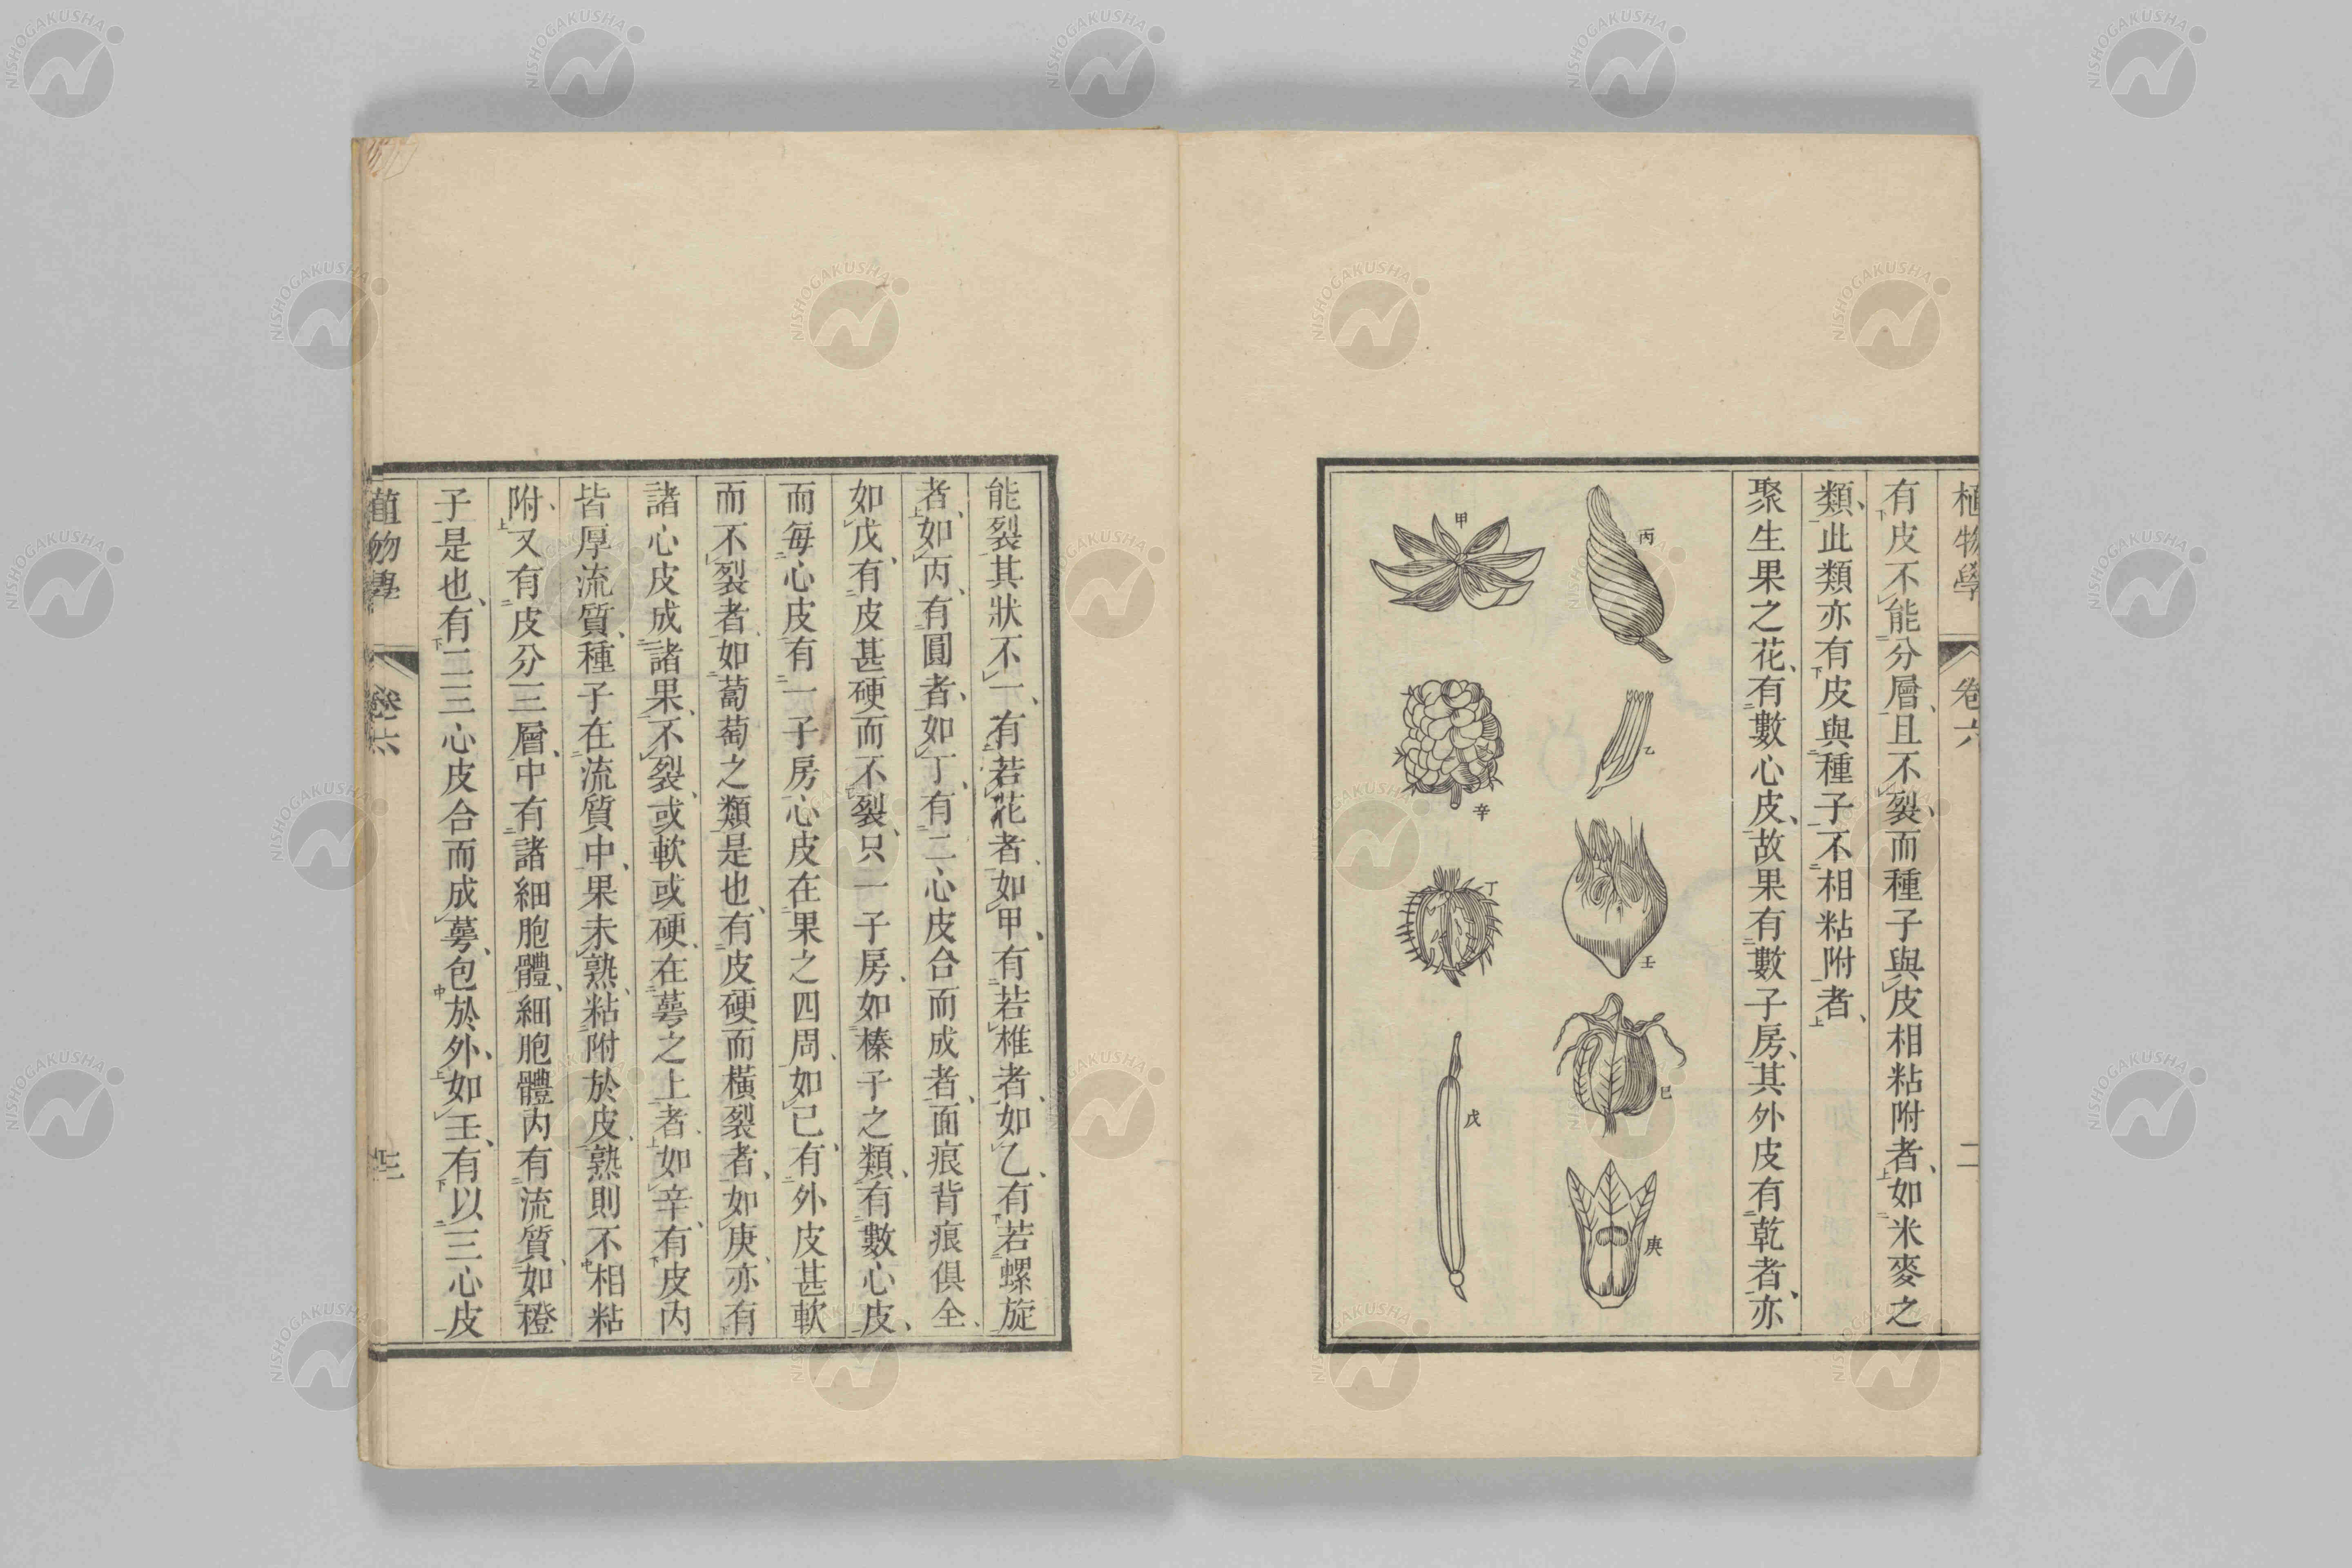 植物學 卷六 二
有皮不能分層、且不裂、而種子與皮相粘附者、如米麥之
類、此類亦有皮與種子不相粘附者、
聚生果之花、有數心皮、故果有數子房、其外皮有乾者、亦
丙
甲
乙
辛
丁
壬
己
戊
庚
能裂其狀不一、有若花者、如甲、有若椎者、如乙、有若螺旋
者、如丙、有圓者、如丁、有二心皮合而成者、面痕背痕俱全、
如戊、有皮甚硬而不裂、只一子房、如榛子之類、有數心皮、
而每心皮有一子房、心皮在果之四周、如己、有外皮甚軟
而不裂者、如葡萄之類是也、有皮硬而橫裂者、如庚、亦有
諸心皮成諸果、不裂、或軟或硬、在萼之上者、如辛、有皮內
皆厚流質、種子在流質中、果未熟、粘附於皮、熟則不相粘
附、又有皮分三層、中有諸細胞體、細胞體內有流質、如橙
子是也、有二三心皮合而成、萼包於外、如壬、有以三心皮
植物學 卷六
NISHOGAKUSHA